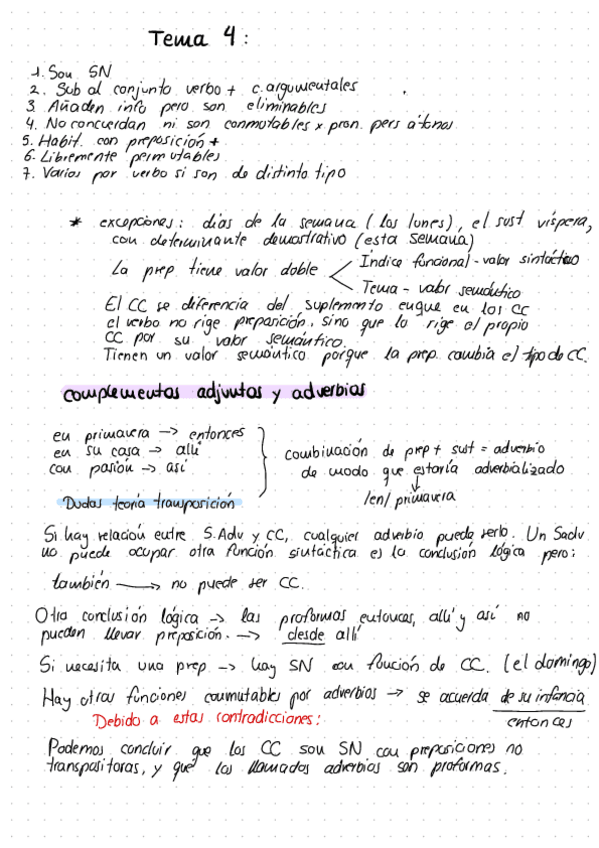 Tema 4:
1. Son SN
2. Sub al conjunto verbo + c. argumentales
3. Añaden info pero son eliminables
4. No concuerdan ni son conmutables x pron. pers átonos
5. Habit. con preposición +
6. Libremente permutables
7. Varios por verbo si son de distinto tipo
* excepciones: días de la semana (los lunes), el sust víspera,
con determinante demostrativo (esta semana)
La prep tiene valor doble
Índice funcional - valor sintáctico
Tema - valor semántico
El CC se diferencia del suplemento en que en los CC
el verbo no rige preparición, sino que la rige el propio
CC por su valor semántico.
Tienen un valor semántico porque la prep. cambia el tipo de CC.
complementos adjuntos y adverbios
en primavera → entonces
en su casa → allí
con pasión → así
combinación de prep + sust = adverbio
de modo que estaría adverbializado
/en/ primavera
Dudas teoría transposición
Si hay relación entre S.Adv y CC, cualquier adverbio puede serlo. Un Sadv
no puede ocupar otra función sintáctica es la conclusión lógica pero:
también → no puede ser CC.
Otra conclusión lógica → las proformas entonces, allí y así no
pueden llevar preposición. → desde allí
Si necesita una prep → hay SN con función de CC. (el domingo)
Hay otras funciones conmutables por adverbios → se acuerda de su infancia
entonces
Debido a estas contradicciones:
Podemos concluir que los CC son SN con preposiciones no
transpositoras, y que los llamados adverbios son proformas.